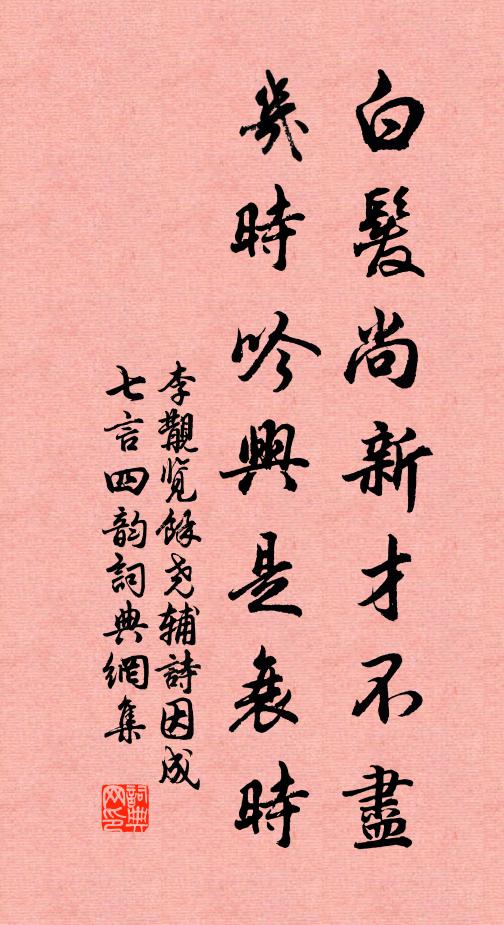 白髮尚新才不盡
幾時吟興是衰時
李覯覧餘尧辅詩因成
七言四韵詞典網集
詞典网印